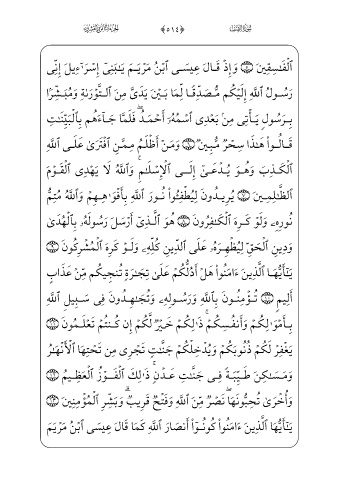 سورة الصف ﴿٥١٤﴾ الجزء الثامن والعشرون
ٱلْفَـٰسِقِينَ وَإِذْ قَالَ عِيسَى ٱبْنُ مَرْيَمَ يَـٰبَنِىٓ إِسْرَٰٓءِيلَ إِنِّى
رَسُولُ ٱللَّهِ إِلَيْكُم مُّصَدِّقًا لِّمَا بَيْنَ يَدَىَّ مِنَ ٱلتَّوْرَىٰةِ وَمُبَشِّرًۢا
بِرَسُولٍ يَأْتِى مِنۢ بَعْدِى ٱسْمُهُۥٓ أَحْمَدُ ۖ فَلَمَّا جَآءَهُم بِٱلْبَيِّنَـٰتِ
قَالُوا۟ هَـٰذَا سِحْرٌ مُّبِينٌ وَمَنْ أَظْلَمُ مِمَّنِ ٱفْتَرَىٰ عَلَى ٱللَّهِ
ٱلْكَذِبَ وَهُوَ يُدْعَىٰٓ إِلَى ٱلْإِسْلَـٰمِ ۚ وَٱللَّهُ لَا يَهْدِى ٱلْقَوْمَ
ٱلظَّـٰلِمِينَ يُرِيدُونَ لِيُطْفِـُٔوا۟ نُورَ ٱللَّهِ بِأَفْوَٰهِهِمْ وَٱللَّهُ مُتِمُّ
نُورِهِۦ وَلَوْ كَرِهَ ٱلْكَـٰفِرُونَ هُوَ ٱلَّذِىٓ أَرْسَلَ رَسُولَهُۥ بِٱلْهُدَىٰ
وَدِينِ ٱلْحَقِّ لِيُظْهِرَهُۥ عَلَى ٱلدِّينِ كُلِّهِۦ وَلَوْ كَرِهَ ٱلْمُشْرِكُونَ
يَـٰٓأَيُّهَا ٱلَّذِينَ ءَامَنُوا۟ هَلْ أَدُلُّكُمْ عَلَىٰ تِجَـٰرَةٍ تُنجِيكُم مِّنْ عَذَابٍ
أَلِيمٍ تُؤْمِنُونَ بِٱللَّهِ وَرَسُولِهِۦ وَتُجَـٰهِدُونَ فِى سَبِيلِ ٱللَّهِ
بِأَمْوَٰلِكُمْ وَأَنفُسِكُمْ ۚ ذَٰلِكُمْ خَيْرٌ لَّكُمْ إِن كُنتُمْ تَعْلَمُونَ
يَغْفِرْ لَكُمْ ذُنُوبَكُمْ وَيُدْخِلْكُمْ جَنَّـٰتٍ تَجْرِى مِن تَحْتِهَا ٱلْأَنْهَـٰرُ
وَمَسَـٰكِنَ طَيِّبَةً فِى جَنَّـٰتِ عَدْنٍ ۚ ذَٰلِكَ ٱلْفَوْزُ ٱلْعَظِيمُ
وَأُخْرَىٰ تُحِبُّونَهَا ۖ نَصْرٌ مِّنَ ٱللَّهِ وَفَتْحٌ قَرِيبٌ ۗ وَبَشِّرِ ٱلْمُؤْمِنِينَ
يَـٰٓأَيُّهَا ٱلَّذِينَ ءَامَنُوا۟ كُونُوٓا۟ أَنصَارَ ٱللَّهِ كَمَا قَالَ عِيسَى ٱبْنُ مَرْيَمَ